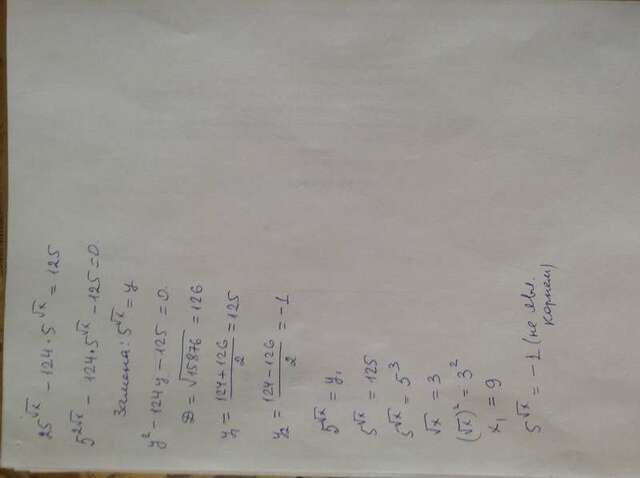 25^√x − 124 · 5^√x = 125
5^2√x − 124·5^√x − 125 = 0.
Замена: 5^√x = y
y² − 124y − 125 = 0.
D = √15876 = 126
y₁ = (124+126)/2 = 125
y₂ = (124−126)/2 = −1
5^√x = y₁
5^√x = 125
5^√x = 5³
√x = 3
(√x)² = 3²
x₁ = 9
5^√x = −1 (не явл.
корнем)